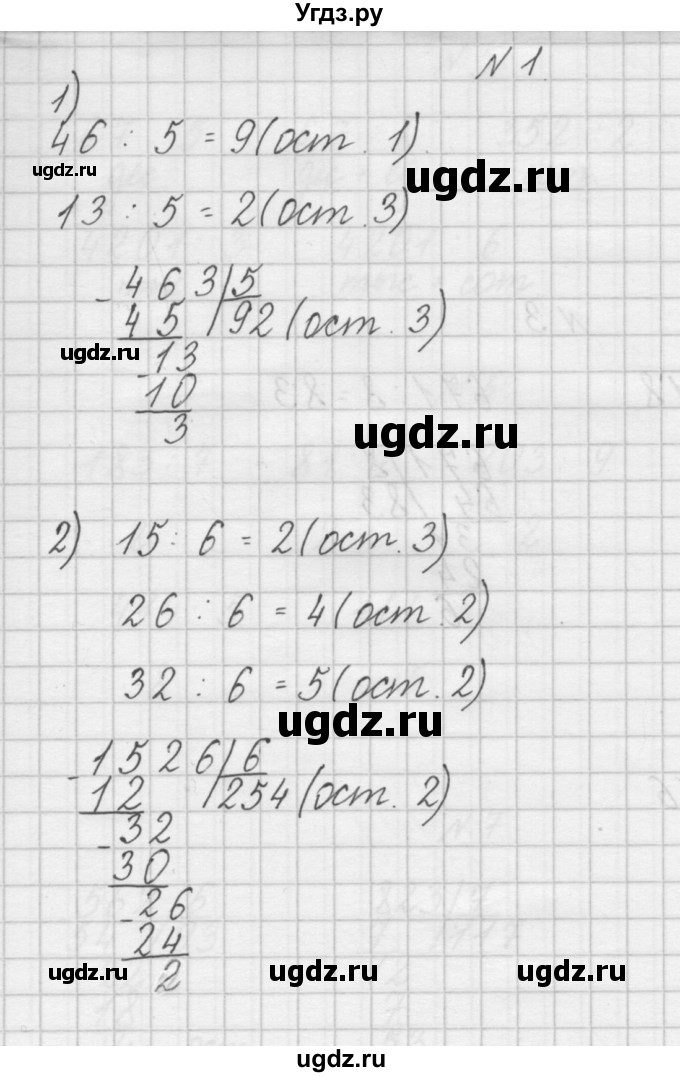 Угдз.ру
N 1.
1)
46 : 5 = 9 (ост. 1).
ugdz.ru
ugdz.ru
13 : 5 = 2 (ост. 3)
- 463 | 5
45 | 92 (ост. 3)
ugdz.ru
- 13
10
3
ugdz.ru
2) 15 : 6 = 2 (ост. 3)
26 : 6 = 4 (ост. 2)
32 : 6 = 5 (ост. 2)
ugdz.ru
- 1526 | 6
12 | 254 (ост. 2)
- 32
30
- 26
24
2
ugdz.ru ugdz.ru ugdz.ru
ugdz.ru